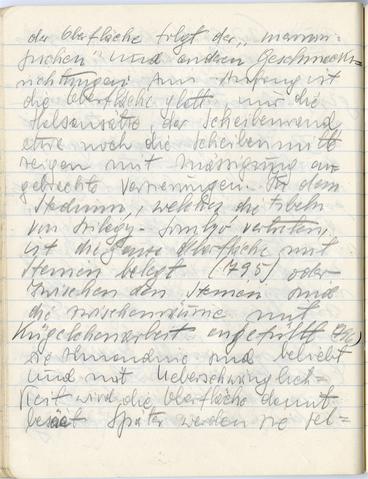 der Oberfläche folgt der „mannin-
ischen" und andren Geschmacks-
richtungen. Am Anfang ist
die Oberfläche glatt, nur die
, der Scheibenrand
etwa noch die Scheibenmitte
zeigen mit Mässigung an-
gebrachte Verzierungen. Für dem
Stadium, welches die Fibeln
von Szilágy-Somlyó vertreten,
ist die ganze Oberfläche mit
Steinen belegt (795) oder
zwischen den Steinen sind
die Zwischenräume mit
Kügelchenarbeit angefüllt 796)
sie sind beliebt
und mit Ueberschwänglich-
keit wird die Oberfläche damit
besäet Später werden sie sel-